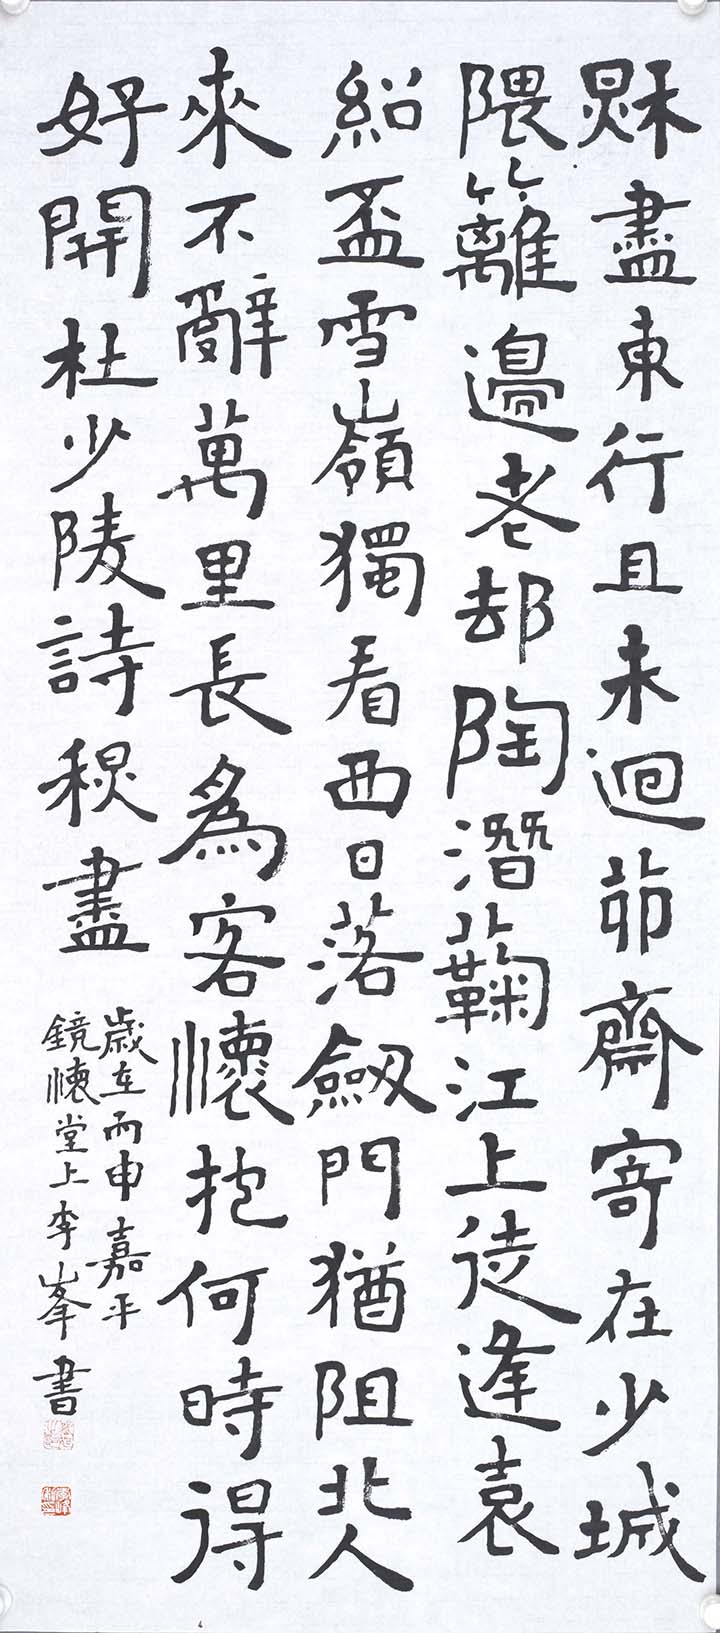 秌盡東行且未迴茆齋寄在少城
隈籬邊老却陶潛菊江上徒逢袁
紹盃雪嶺獨看西日落劔門猶阻北人
來不辭萬里長為客懷抱何時得
好開杜少陵詩秌盡
歲在丙申嘉平
鏡懷堂上李峯書